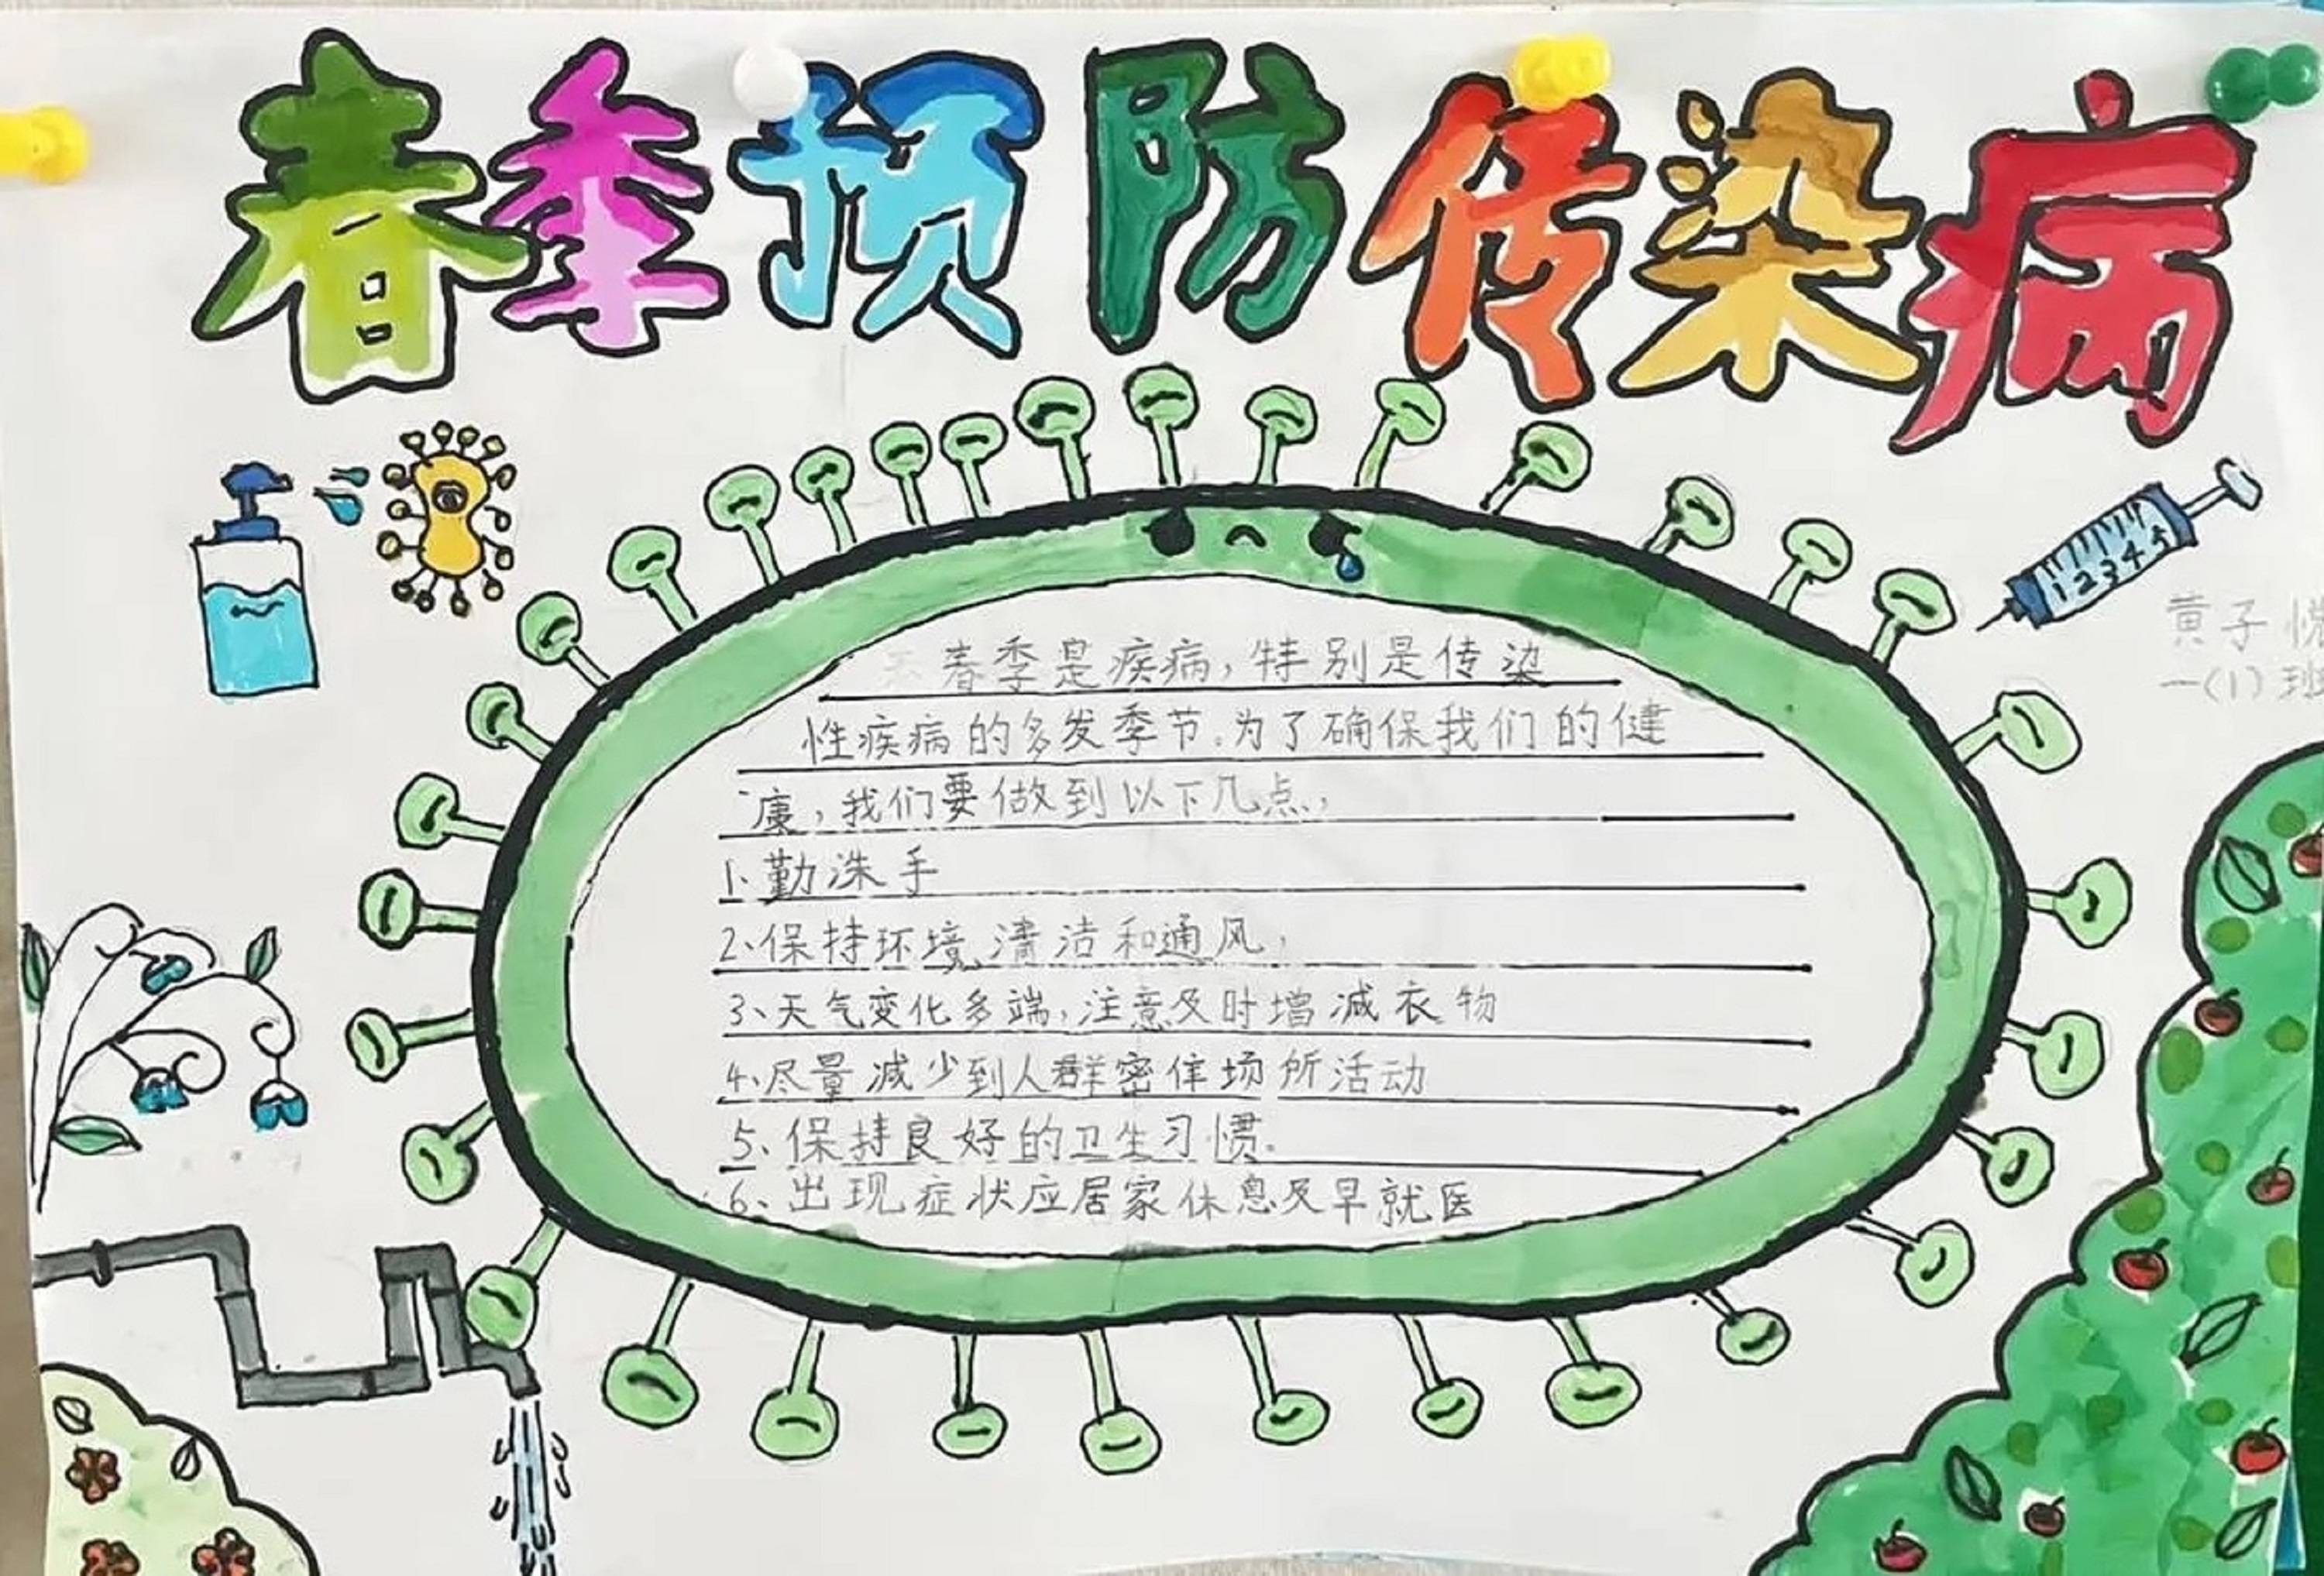 春季预防传染病
春季是疾病,特别是传染
性疾病的多发季节。为了确保我们的健
康,我们要做到以下几点,
1、勤洗手
2、保持环境清洁和通风,
3、天气变化多端,注意及时增减衣物
4、尽量减少到人群密集场所活动
5、保持良好的卫生习惯.
6、出现症状应居家休息及早就医
12345
黄子悦
一(1)班